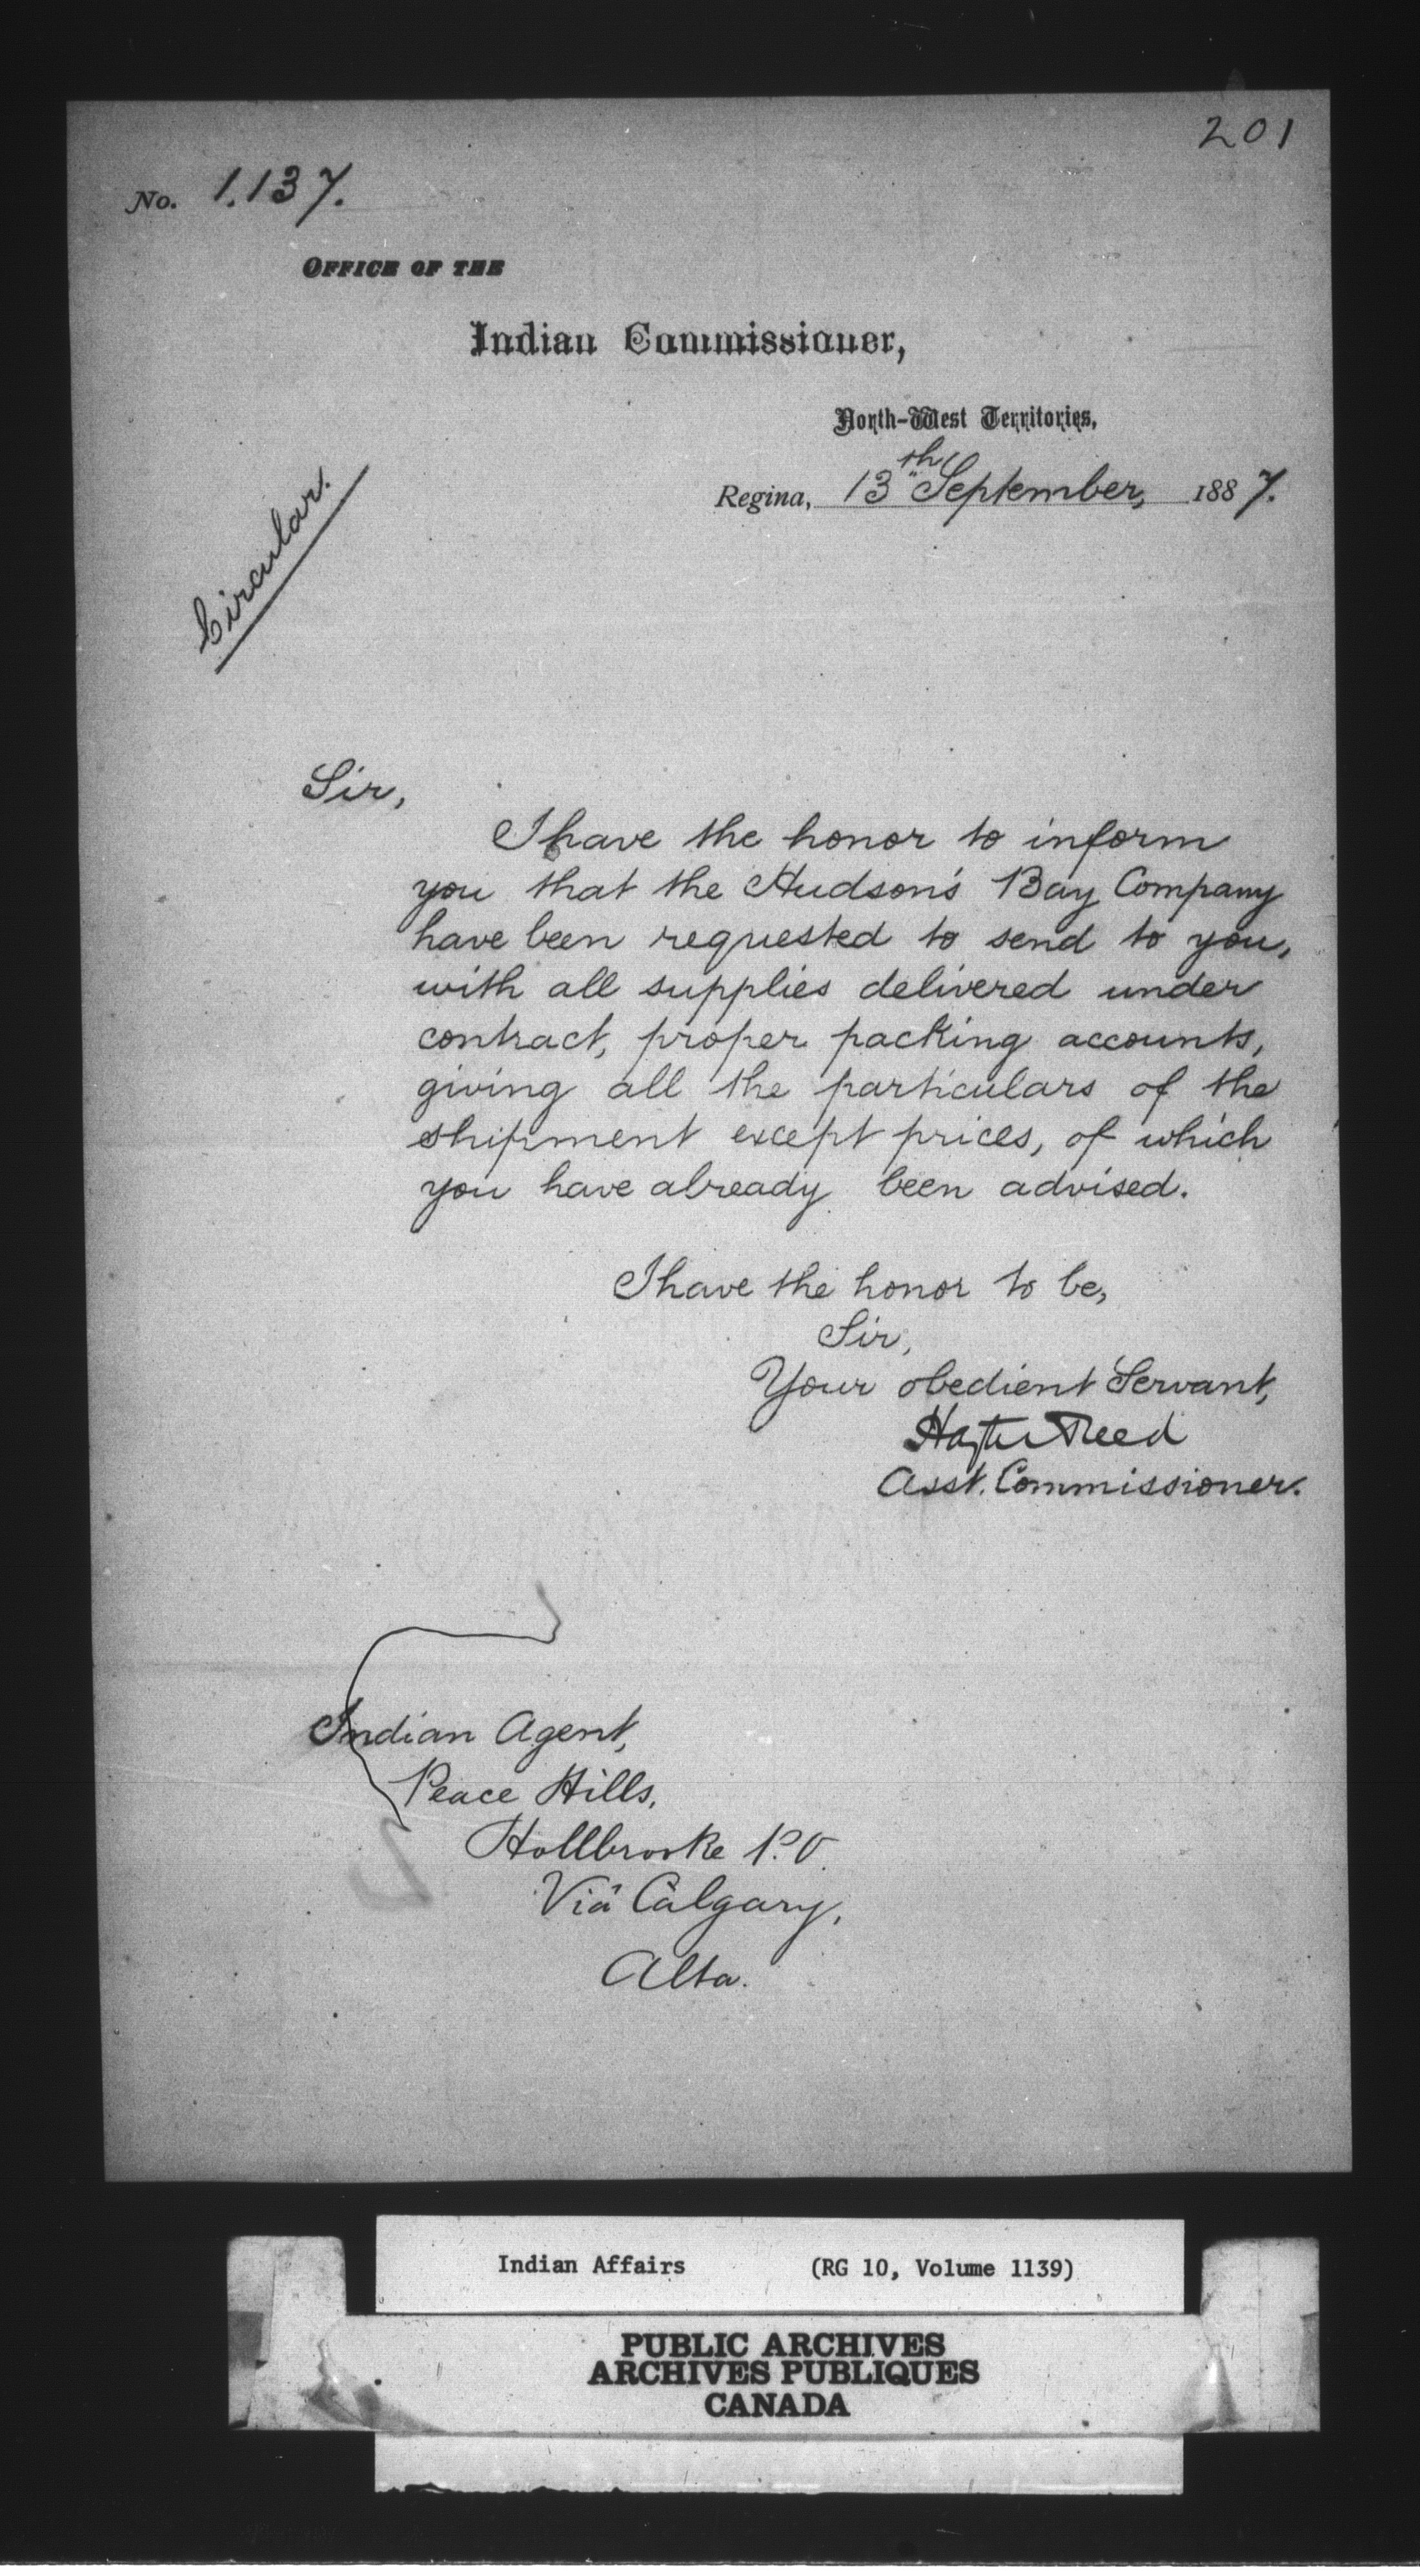 201
No. 1.137.
OFFICE OF THE
Indian Commissioner,
North-West Territories,
Regina, 13th September, 1887.
Circular.
Sir,
I have the honor to inform
you that the Hudson's Bay Company
have been requested to send to you,
with all supplies delivered under
contract, proper packing accounts,
giving all the particulars of the
shipment except prices, of which
you have already been advised.
I have the honor to be,
Sir,
Your obedient Servant,
Hayter Reed
Asst. Commissioner.
Indian Agent,
Peace Hills,
Hollbrooke P.O.
Viâ Calgary,
Alta.
Indian Affairs (RG 10, Volume 1139)
PUBLIC ARCHIVES
ARCHIVES PUBLIQUES
CANADA